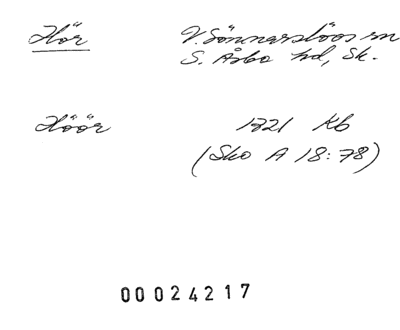 Hör V. Sönnarslövs sn
S. Åsbo hd, Sk.
Höör 1721 Kb
(Sko A 18:78)
00024217